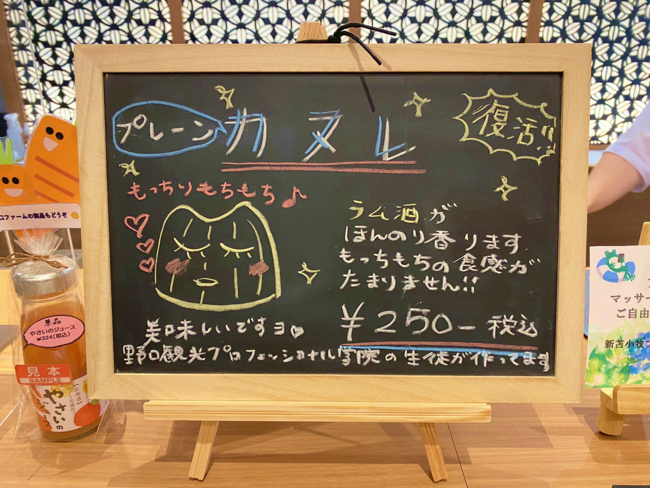 プレーン
カヌレ
復活!!
もっちりもちもち♪
ラム酒が
ほんのり香ります
もっちもちの食感が
たまりません!!
¥250-税込
美味しいですヨ
野口観光プロフェッショナル学院の生徒が作ってます
コファームの製品もどうぞ
単品
やさいのジュース
¥324(税込)
見本
SAMPLE
やさいの
マッサー
ご自由
新苫小牧プ